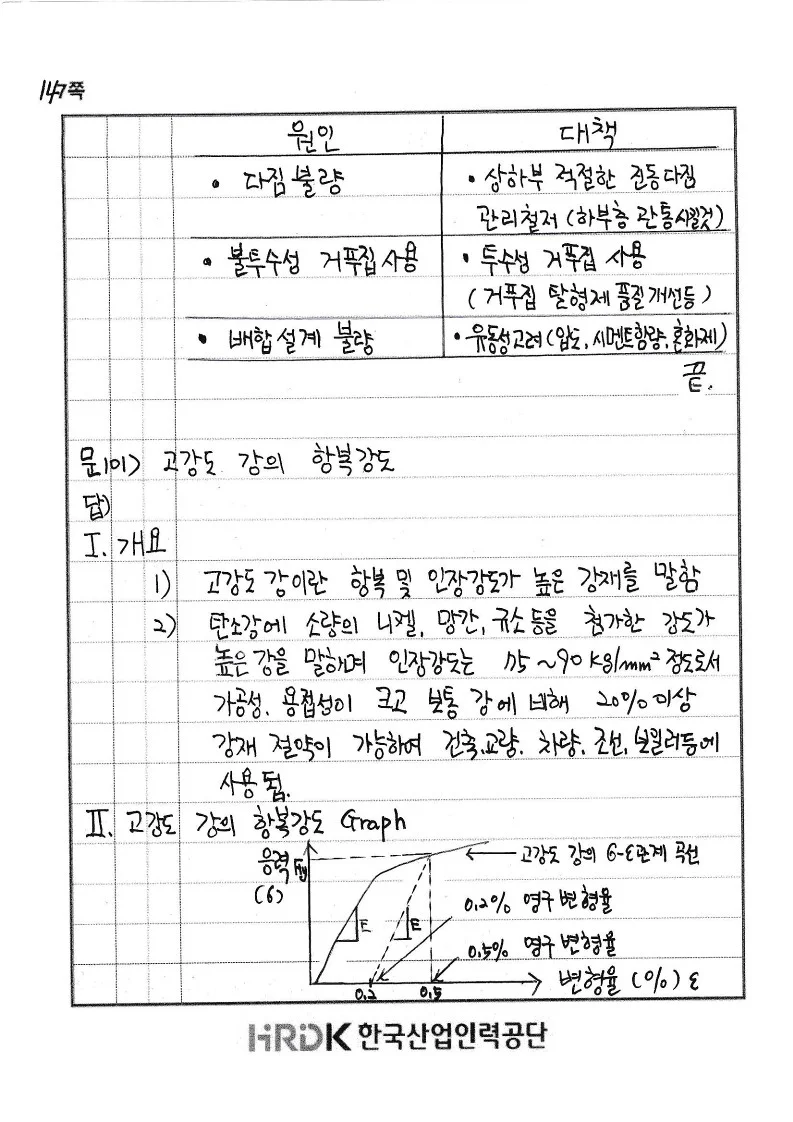 147쪽
원인 대책
• 다짐불량 • 상하부 적절한 진동다짐
관리철저 (하부층 관통시킬것)
• 불투수성 거푸집 사용 • 투수성 거푸집 사용
(거푸집 탈형제 품질개선등)
• 배합설계 불량 • 유동성고려(입도, 시멘트함량, 혼화제)
끝.
문 101) 고강도 강의 항복강도
답)
I. 개요
1) 고강도 강이란 항복 및 인장강도가 높은 강재를 말함
2) 탄소강에 소량의 니켈, 망간, 규소 등을 첨가한 강도가
높은 강을 말하며 인장강도는 75 ~90 kg/mm² 정도로서
가공성, 용접성이 크고 보통 강에 비해 20% 이상
강재 절약이 가능하여 건축,교량, 차량, 조선, 보일러등에
사용 됨.
II. 고강도 강의 항복강도 Graph
응력 Fy
(б)
← 고강도 강의 б-ε관계 곡선
E E
0.2% 영구변형율
0.5% 영구변형율
0.2 0.5
변형율 (%) ε
HRDK 한국산업인력공단